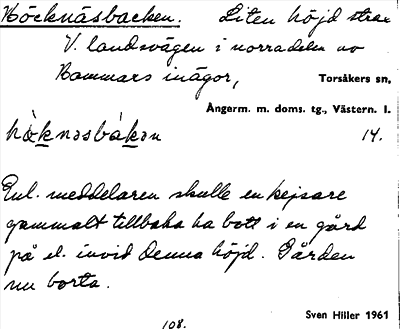 Höcknäsbacken. Liten höjd strax
V. landsvägen i norradelen av
Hammars inägor, Torsåkers sn,
Ångerm. m. doms. tg., Västern. l.
14.
Enl. meddelaren skulle en kejsare
gammalt tillbaka ha bott i en gård
på el. invid denna höjd. Gården
nu borta.
Sven Hiller 1961
108.